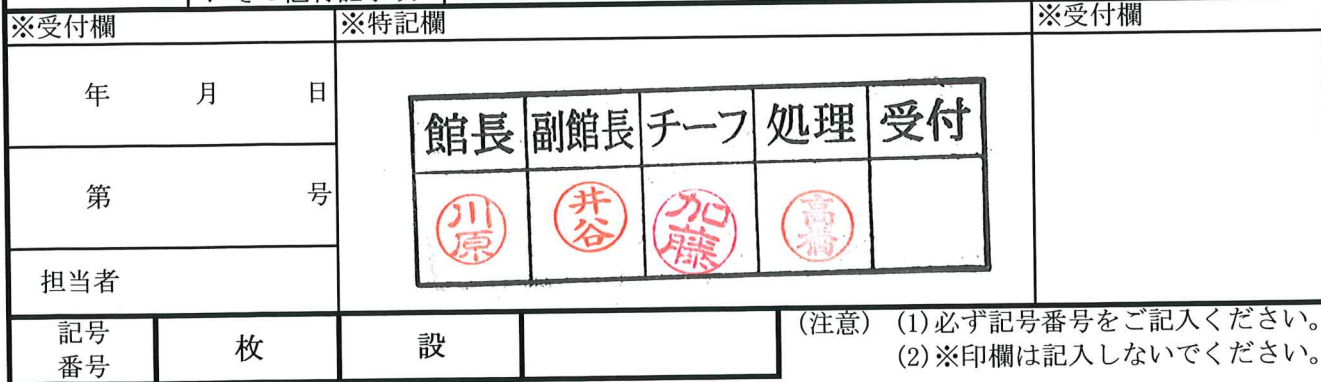 ※受付欄
※特記欄
※受付欄
年 月 日
第 号
担当者
館長 副館長 チーフ 処理 受付
川原 井谷 加藤 高橋
記号番号 枚 設
(注意) (1)必ず記号番号をご記入ください。
(2)※印欄は記入しないでください。